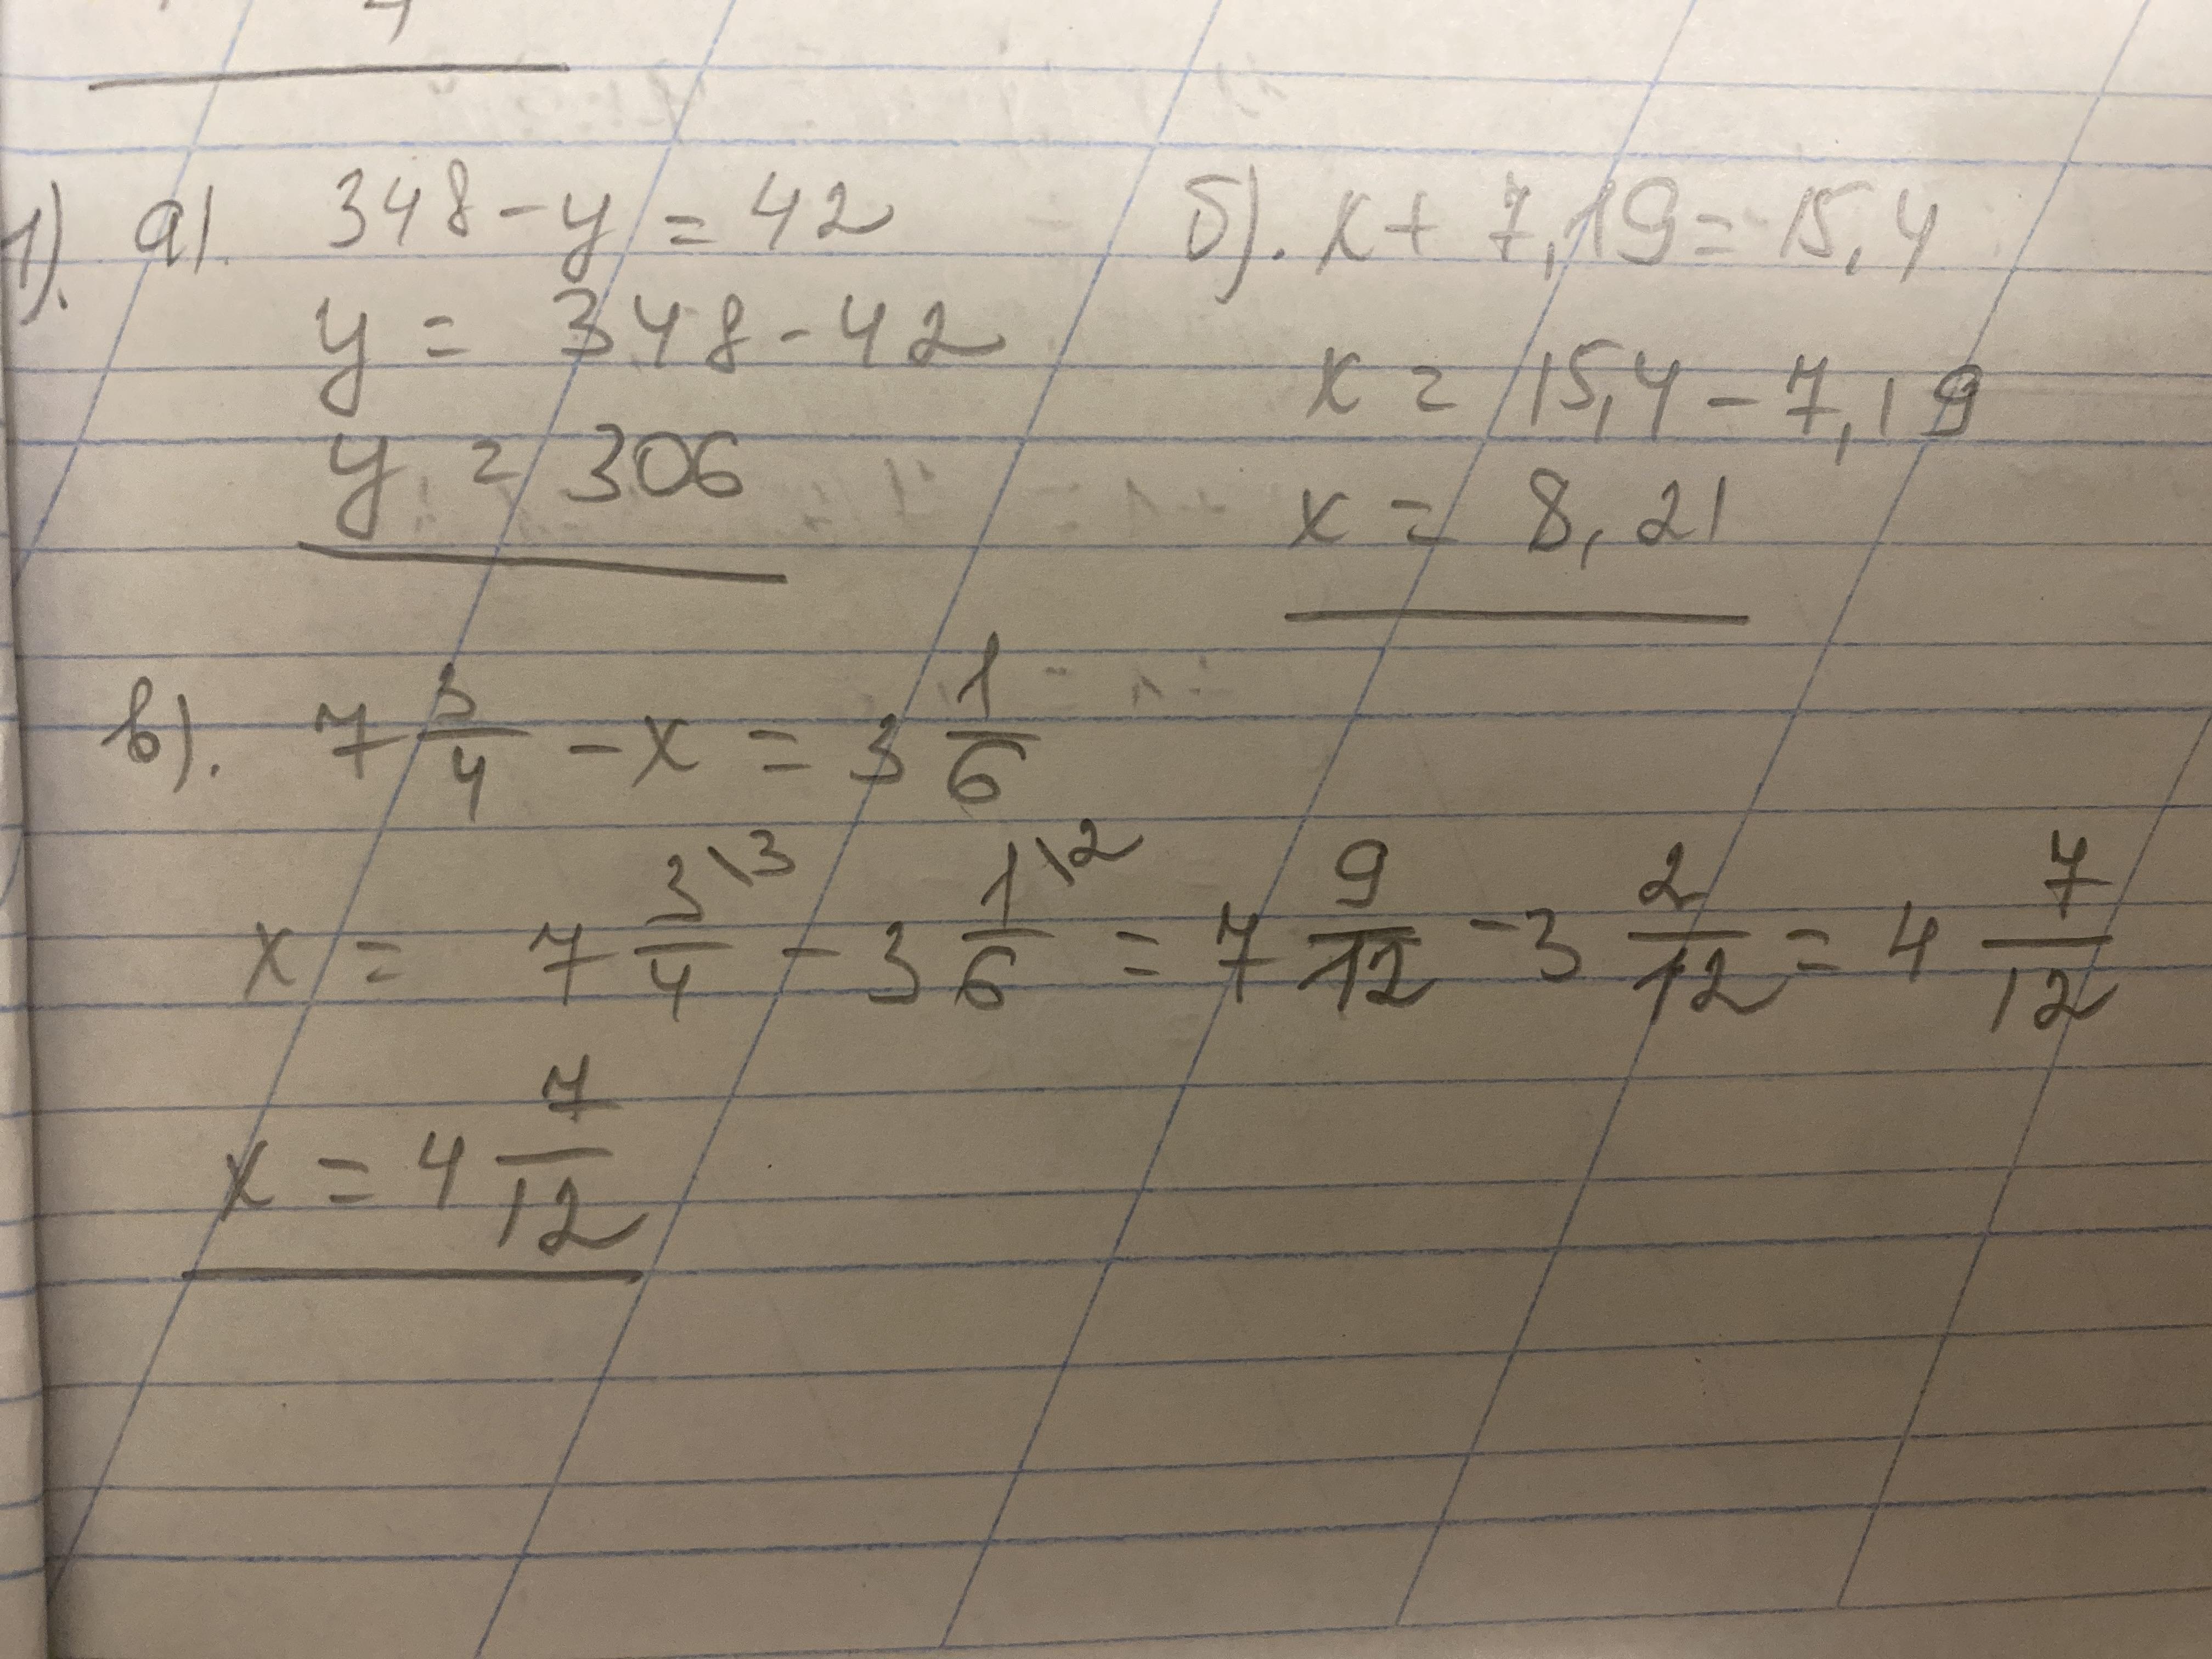 1). а). 348 - y = 42
y = 348 - 42
y = 306
б). x + 7,19 = 15,4
x = 15,4 - 7,19
x = 8,21
в). 7 3/4 - x = 3 1/6
x = 7 3/4 \3 - 3 1/6 \2 = 7 9/12 - 3 2/12 = 4 7/12
x = 4 7/12